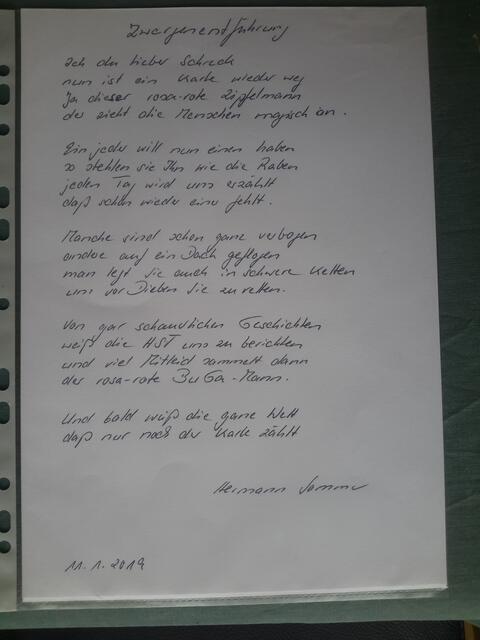 Zwergenentführung
Ach du lieber Schreck
nun ist ein Karle wieder weg
Ja dieser rosa-rote Zipfelmann
der zieht die Menschen magisch an.
Ein jeder will nun einen haben
so stehlen sie Ihn wie die Raben
jeden Tag wird uns erzählt
daß schon wieder einer fehlt.
Manche sind schon ganz verbogen
andere auf ein Dach geflogen
man legt sie auch in schwere Ketten
um vor Dieben sie zu retten.
Von gar schaurlichen Geschichten
weiß die HST uns zu berichten
und viel Mitleid sammelt dann
der rosa-rote BuGa-Mann.
Und bald weiß die ganze Welt
daß nur noch der Karle zählt
Hermann
11.1.2019